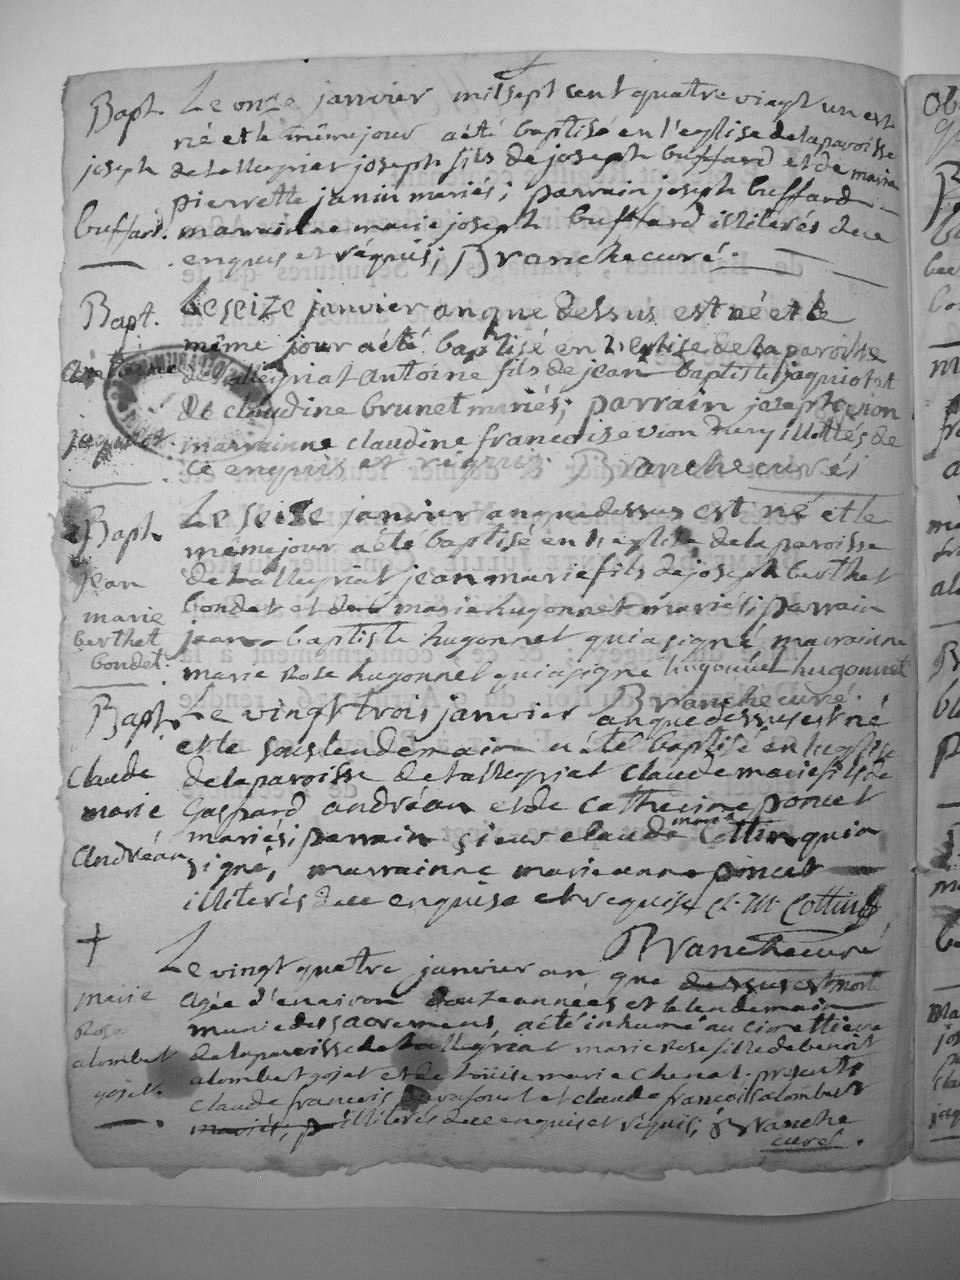 Bapt. Le onze janvier mil sept cent quatre vingt un est
né et le même jour a été baptisé en l'eglise de la paroisse
joseph de tallegriat joseph fils de joseph buffard et de marie
pierrette janin mariés; parrain joseph buffard
buffard. marrainne marie joseph buffard illiterés de ce
enquis et réquis; Branche curé.
Bapt. Le seize janvier an que dessus est né et le
même jour a été baptisé en l'eglise de la paroisse
antoine de tallegriat antoine fils de jean baptiste jaquiot et
de claudine brunet mariés; parrain joseph
jaquiot. marrainne claudine francoise illités de
ce enquis et réquis. Branche curé;
Bapt. Le seize janvier an que dessus est né et le
même jour a été baptisé en l'eglise de la paroisse
jean de tallegriat jean marie fils de joseph berthet
marie bondet et de marie hugonnet mariés; parrain
berthet jean baptiste hugonnet qui a signé, marrainne
bondet. marie rose hugonnet qui a signé hugonnet hugonnet
Branche curé.
Bapt. Le vingt trois janvier an que dessus est né
et le sous lendemain a été baptisé en l'eglise
claude de la paroisse de tallegriat claude marie fils de
marie Gaspard andréan et de catherine poncet
mariés; parrain sieur claude marie Cottin qui a
Andréan signé, marrainne marie anne poncet
illiterés de ce enquise et requise Cl. M. Cottin
Branche curé
Le vingt quatre janvier an que dessus est morte
marie agée d'environ douze années et le lendemain
Rose munie des sacremens, a été inhumé au cimettiere
alombert de la paroisse de tallegriat marie rose fille de benoit
gojet. alombert gojet et de Loüise marie chenat. presents
claude francois et claude francois alombert
illiterés de ce enquis et réquis; Branche
curé.